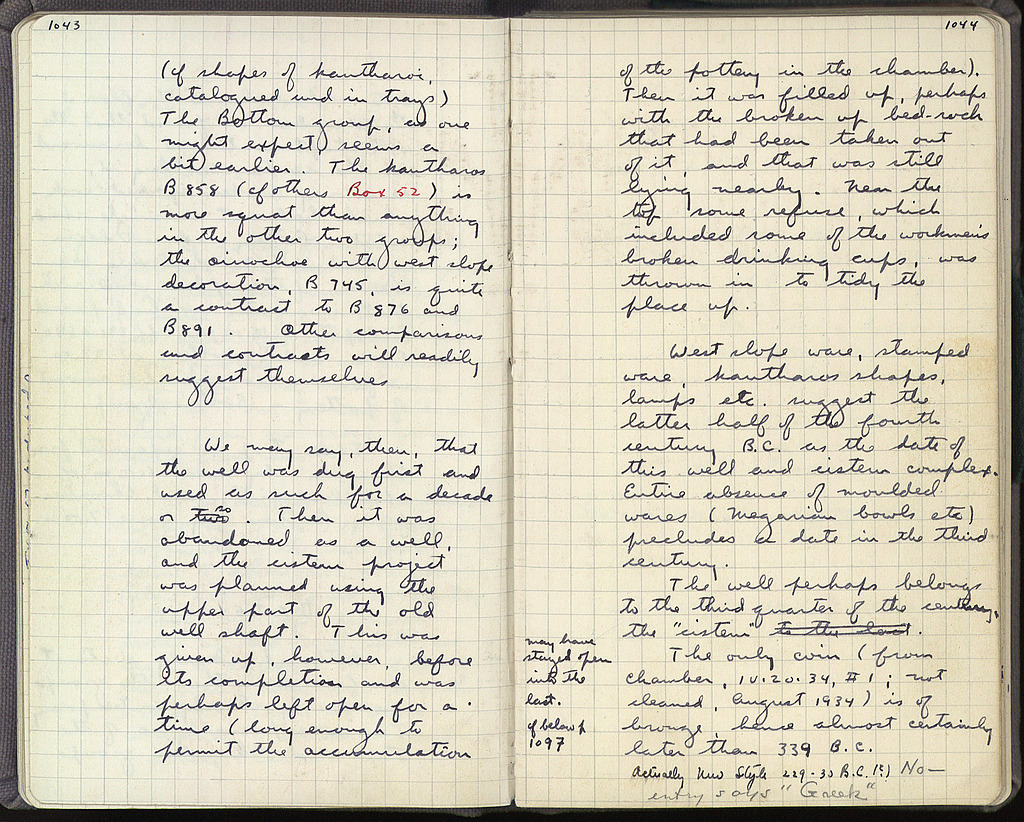 1043
(cf shapes of kantharoi,
catalogued and in trays)
The Bottom group, as one
might expect, seems a
bit earlier. The kantharos
B 858 (cf others Box 52) is
more squat than anything
in the other two groups;
the oinochoe with west slope
decoration, B 745, is quite
a contrast to B 876 and
B 891. Other comparisons
and contrasts will readily
suggest themselves
We may say, then, that
the well was dug first and
used as such for a decade
or two so. Then it was
abandoned as a well,
and the cistern project
was planned using the
upper part of the old
well shaft. This was
given up, however, before
its completion and was
perhaps left open for a
time (long enough to
permit the accumulation
1044
of the pottery in the chamber).
Then it was filled up, perhaps
with the broken up bed-rock
that had been taken out
of it, and that was still
lying nearby. Near the
top some refuse, which
included some of the workmen's
broken drinking cups, was
thrown in to tidy the
place up.
West slope ware, stamped
ware, kantharos shapes,
lamps etc. suggest the
latter half of the fourth
century B.C. as the date of
this well and cistern complex.
Entire absence of moulded
wares (Megarian bowls etc)
precludes a date in the third
century.
The well perhaps belongs
to the third quarter of the century,
the "cistern" to the last.
may have
stayed open
into the
last.
cf below p
1097
The only coin (from
chamber, 10.20.34, #1; not
cleaned, August 1934) is of
bronze, hence almost certainly
later than 339 B.C.
Actually New Style 229-30 B.C. (?) No—
entry says "Greek"